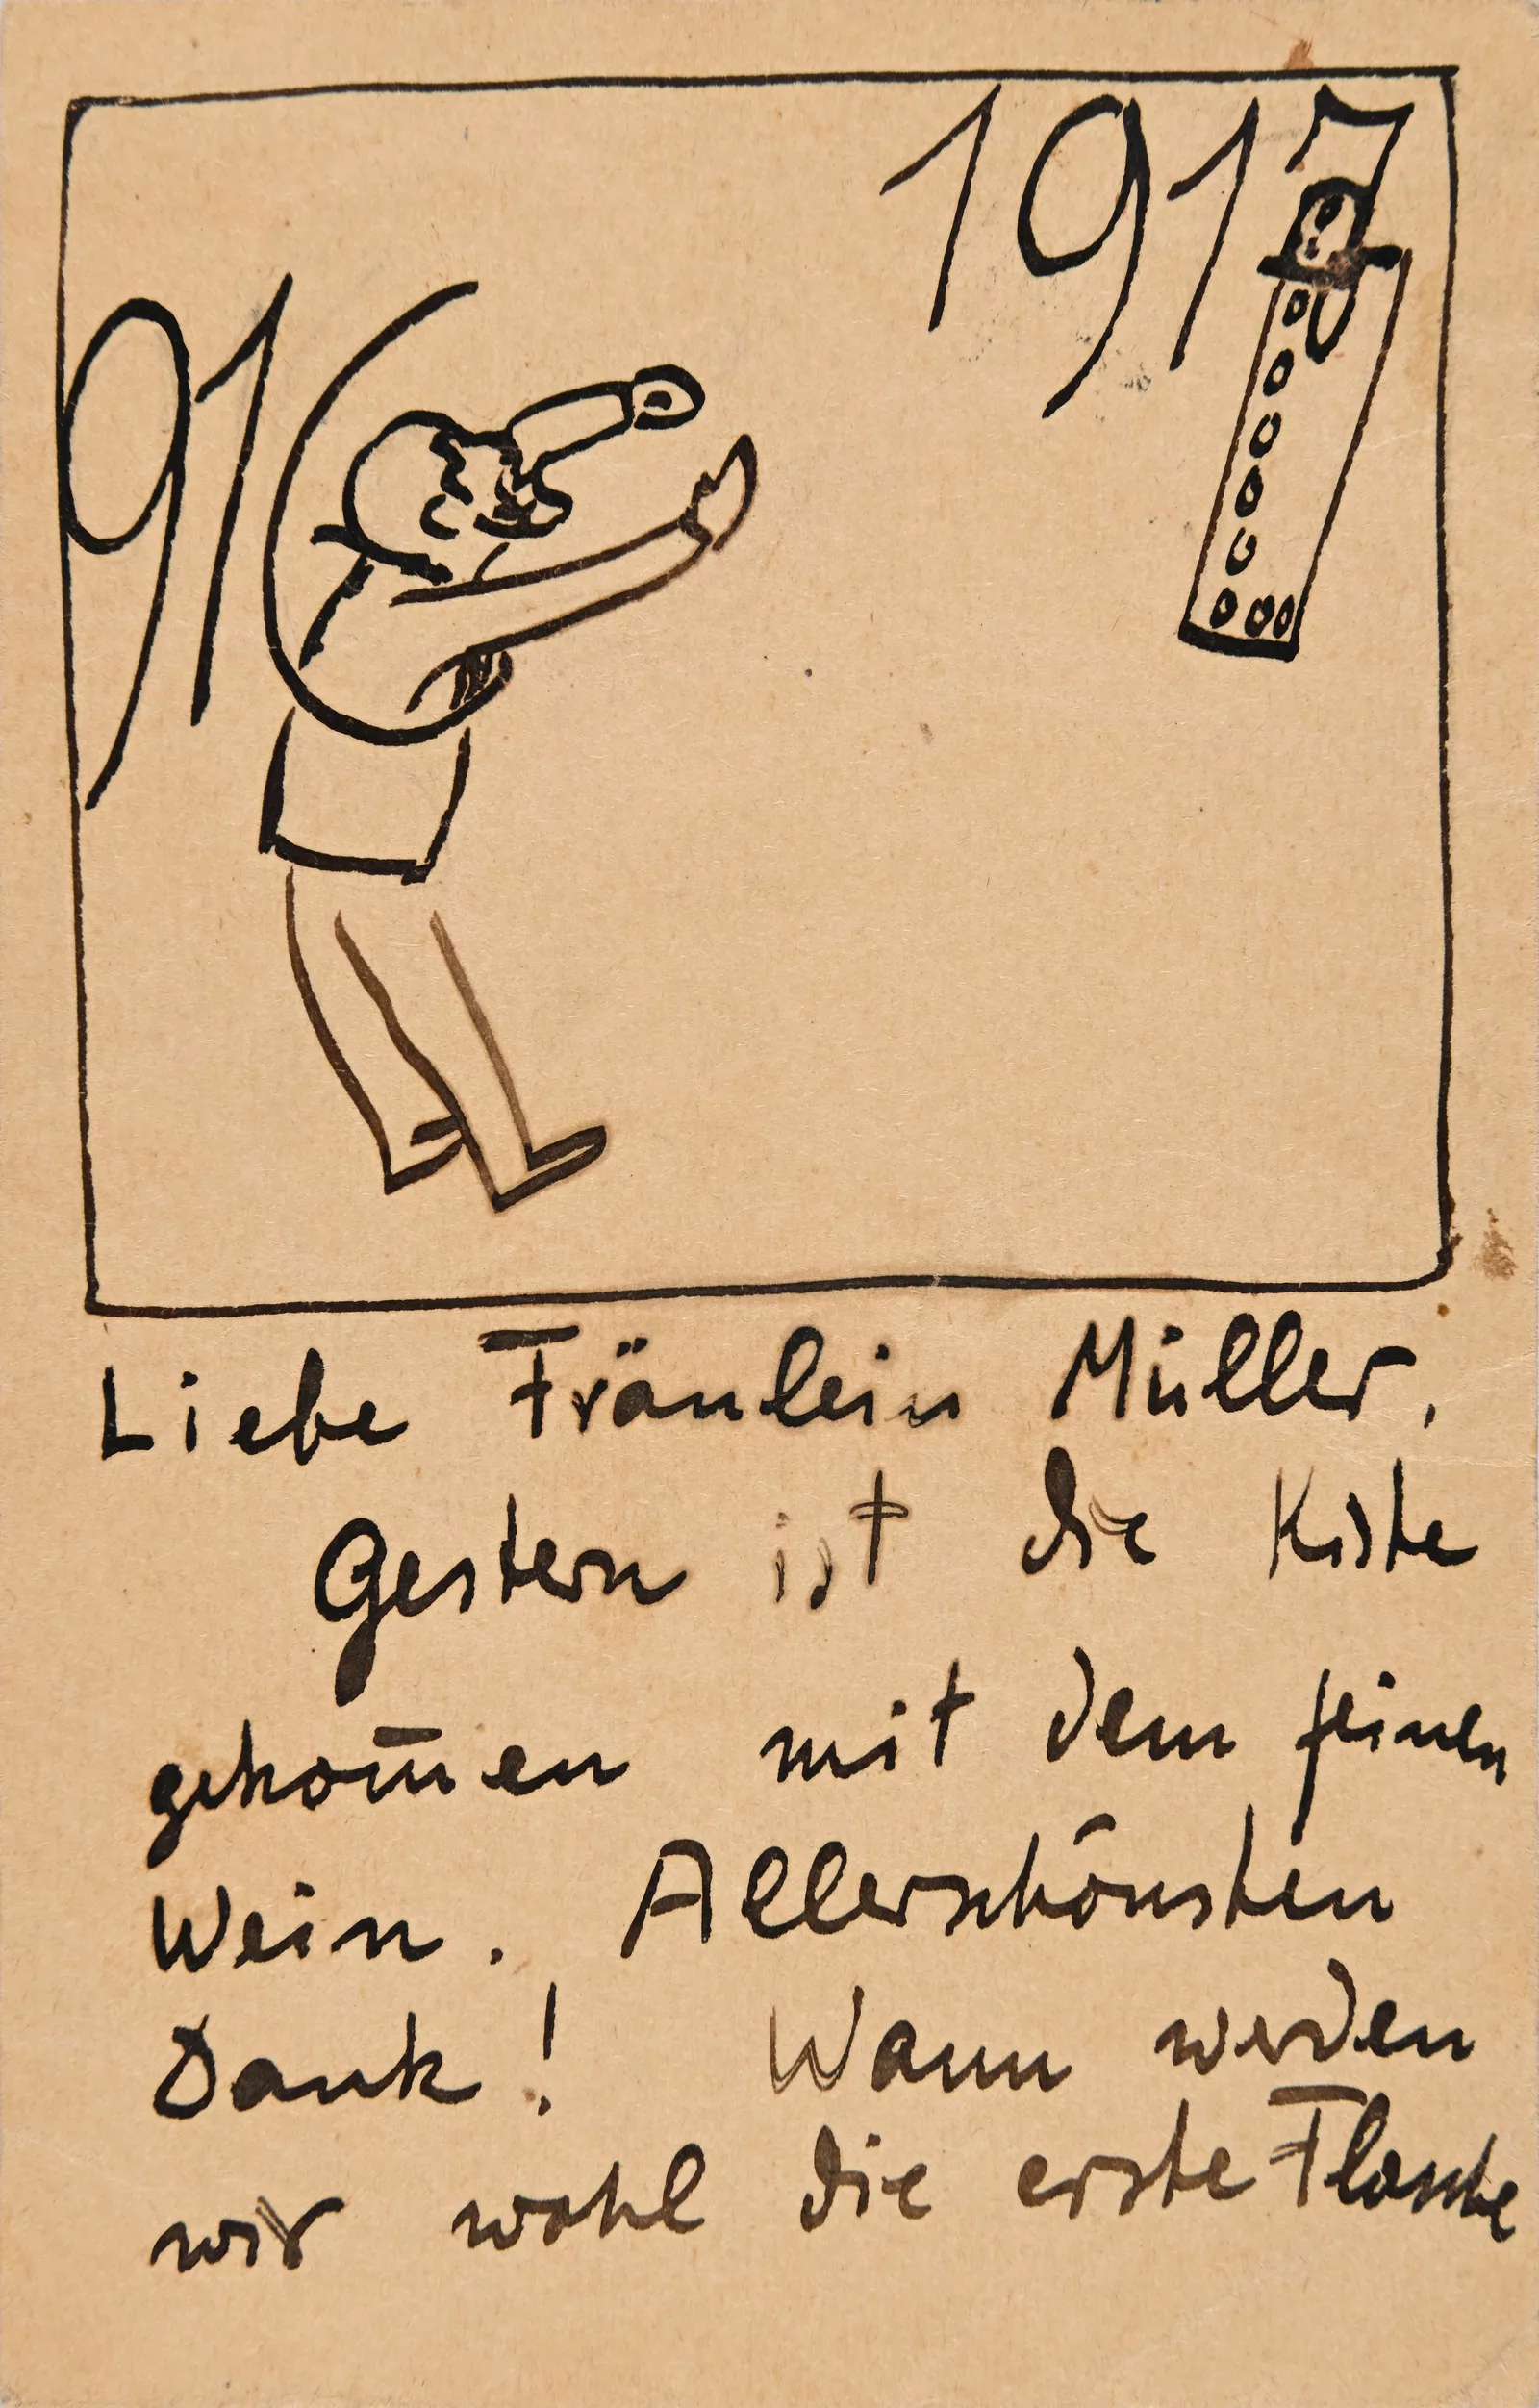 1917
916
Liebe Fräulein Müller,
Gestern ist die Kiste
gekom̄en mit dem feinen
Wein. Allerschönsten
Dank! Wann werden
wir wohl die erste Flasche